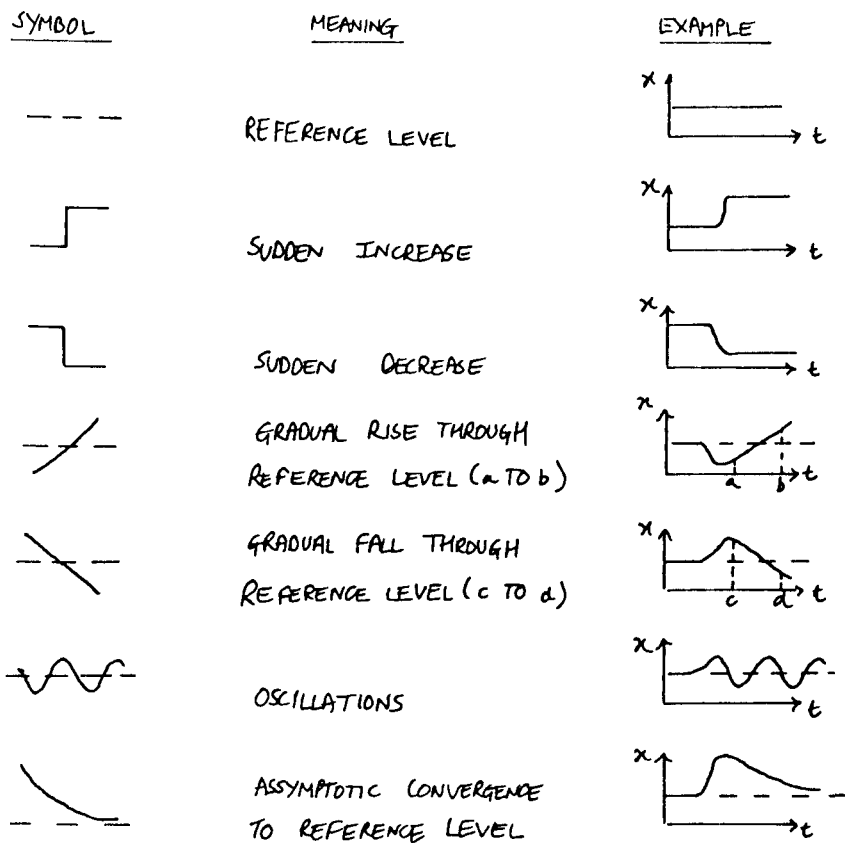 SYMBOL MEANING EXAMPLE
REFERENCE LEVEL
x
t
SUDDEN INCREASE
x
t
SUDDEN DECREASE
x
t
GRADUAL RISE THROUGH
REFERENCE LEVEL (a TO b)
x
a b t
GRADUAL FALL THROUGH
REFERENCE LEVEL (c TO d)
x
c d t
OSCILLATIONS
x
t
ASSYMPTOTIC CONVERGENCE
TO REFERENCE LEVEL
x
t